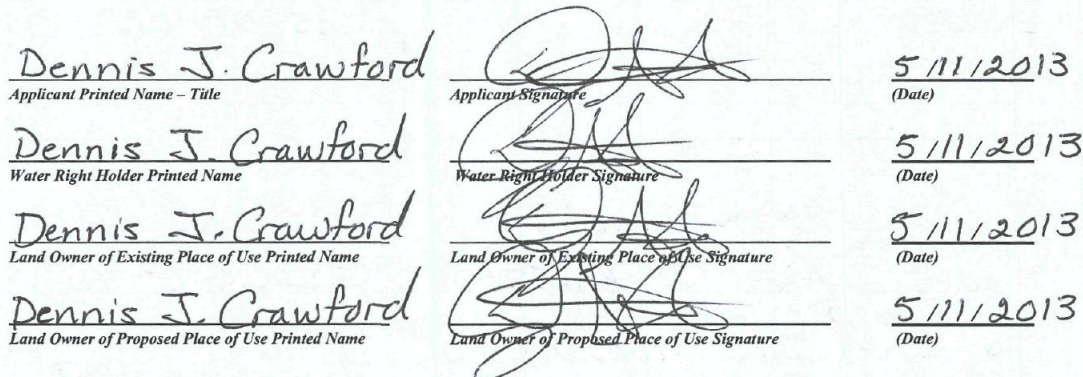 Dennis J. Crawford 5/11/2013
Applicant Printed Name – Title Applicant Signature (Date)
Dennis J. Crawford 5/11/2013
Water Right Holder Printed Name Water Right Holder Signature (Date)
Dennis J. Crawford 5/11/2013
Land Owner of Existing Place of Use Printed Name Land Owner of Existing Place of Use Signature (Date)
Dennis J. Crawford 5/11/2013
Land Owner of Proposed Place of Use Printed Name Land Owner of Proposed Place of Use Signature (Date)